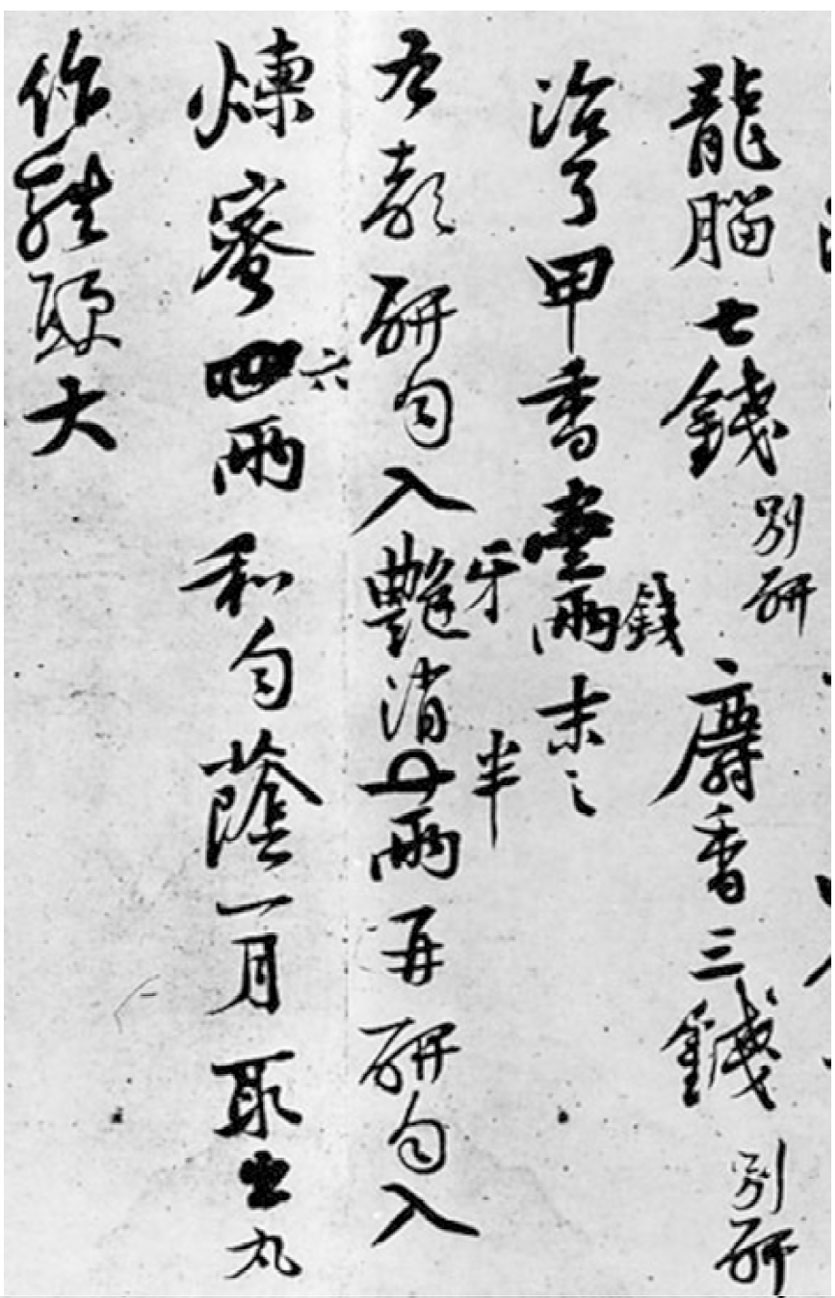 龍腦七錢別研麝香三錢別研
治了甲香壹兩錢末之
右都研勻入艷牙消半兩再研勻入
煉蜜四六兩和勻蔭一月取出丸
作雞頭大